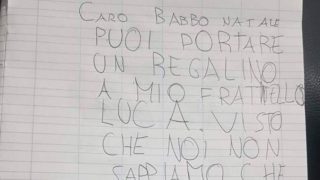 CARO BABBO NATALE
PUOI PORTARE
UN REGALINO
A MIO FRATNELLO
LUCA. VISTO
CHE NOI NON
SAPPIAMO CHE